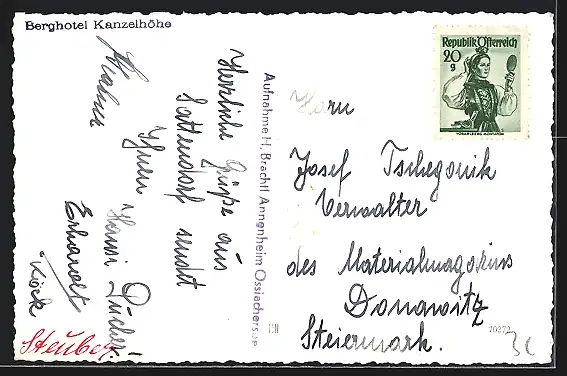 Berghotel Kanzelhöhe
Herzliche Grüße aus
Sattendorf sendet
Ihnen Hansi
Erhardt
Köck
Aufnahme H. Brachtl Annenheim Ossiachersee
Republik Österreich
20
g
Herrn
Josef Tschegonik
Verwalter
des Materialmagazins
Donawitz
Steiermark.
70272